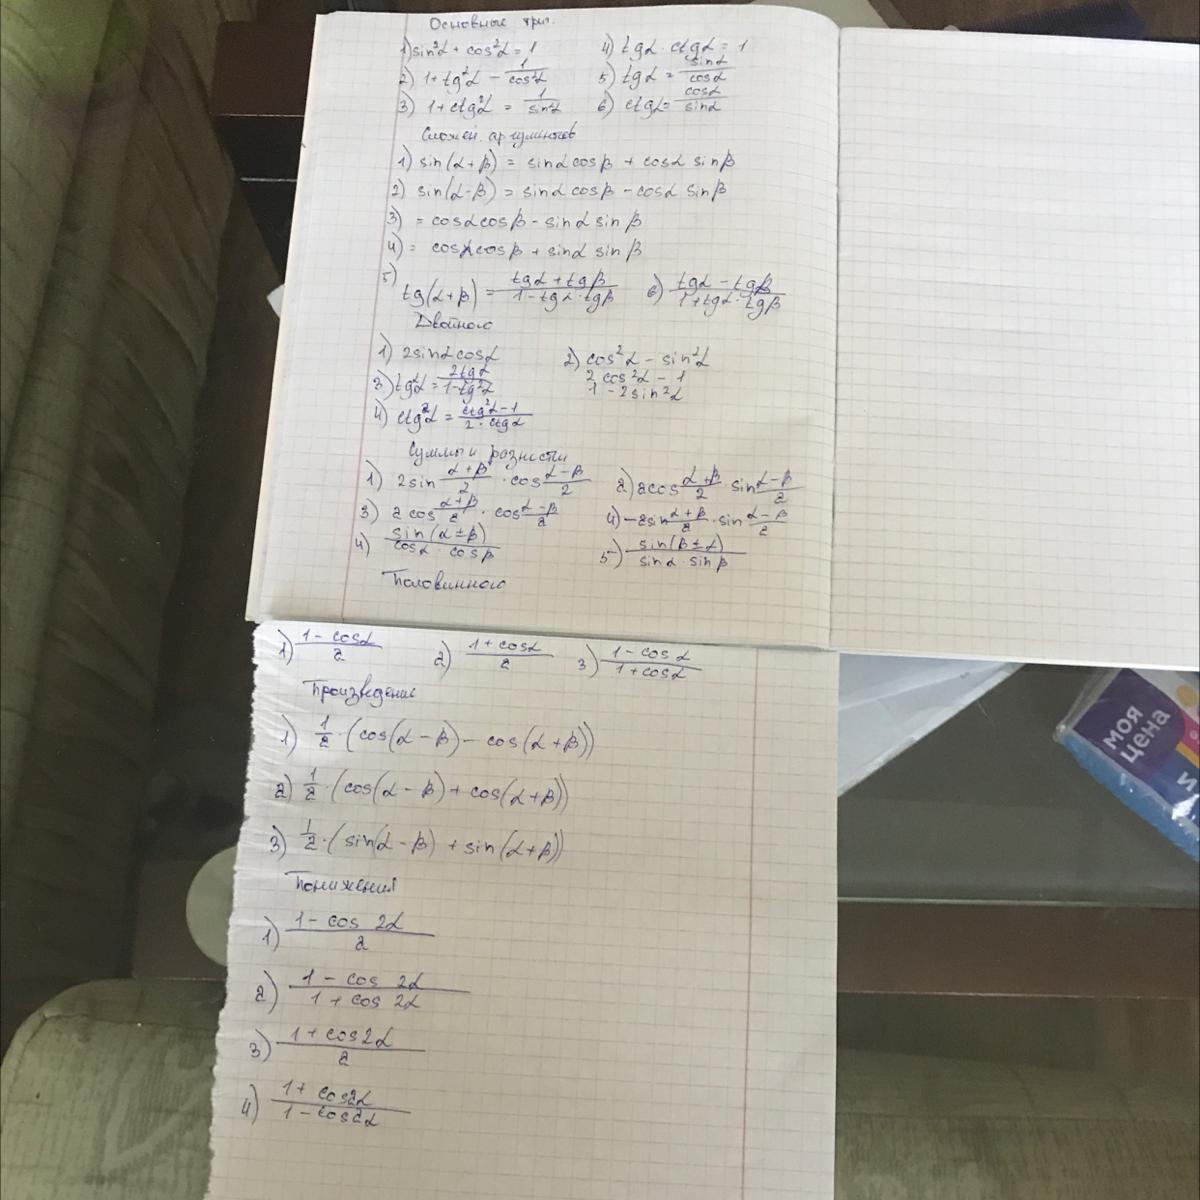 Основные триг.
1) sin²α + cos²α = 1 4) tgα · ctgα = 1
2) 1 + tg²α - 1/cos²α 5) tgα = sinα/cosα
3) 1 + ctg²α = 1/sin²α 6) ctgα = cosα/sinα
Сложен. аргументов
1) sin(α+β) = sinα cosβ + cosα sinβ
2) sin(α-β) = sinα cosβ - cosα sinβ
3) = cosα cosβ - sinα sinβ
4) = cosα cosβ + sinα sinβ
5) tg(α+β) = tgα + tgβ/1 - tgα · tgβ 6) tgα - tgβ/1 + tgα · tgβ
Двойного
1) 2sinα cosα 2) cos²α - sin²α
2cos²α - 1
3) tg2α = 2tgα/1-tg²α 1 - 2sin²α
4) ctg2α = ctg²α-1/2·ctgα
Суммы и разности
1) 2sin α+β/2 · cos α-β/2 2) 2cos α+β/2 · sin α-β/2
3) 2cos α+β/2 · cos α-β/2 4) -2sin α+β/2 · sin α-β/2
4) sin(α±β)/cosα · cosβ 5) sin(β±α)/sinα · sinβ
Половинного
1) 1 - cosα/2 2) 1 + cosα/2 3) 1 - cosα/1 + cosα
Произведение
1) 1/2 · (cos(α-β) - cos(α+β))
2) 1/2 · (cos(α-β) + cos(α+β))
3) 1/2 · (sin(α-β) + sin(α+β))
Понижения
1) 1 - cos 2α/2
2) 1 - cos 2α/1 + cos 2α
3) 1 + cos2α/2
4) 1 + cos2α/1 - cos2α
моя
цена